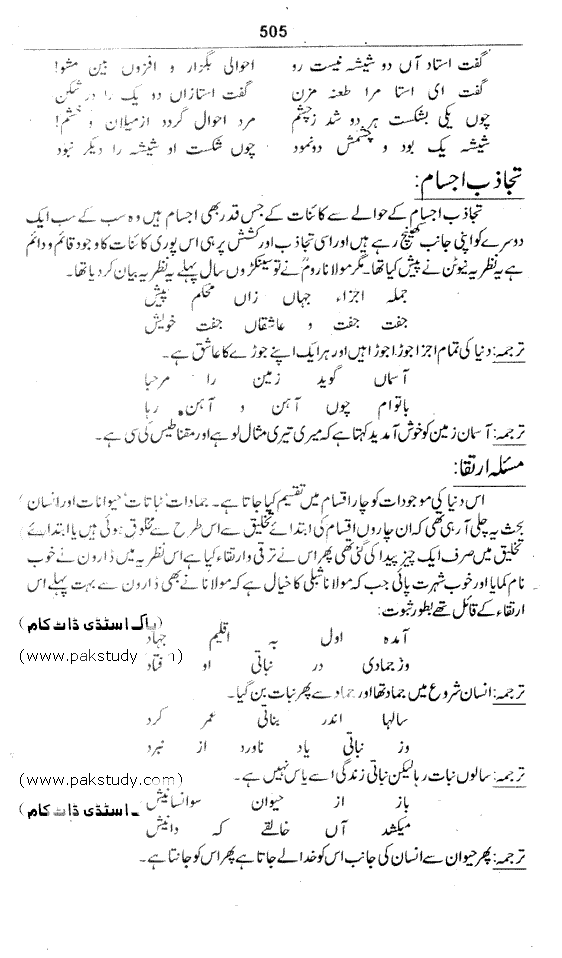 505
گفت استاد آں دو شیشہ نیست رو احولی بگزار و افزوں بیں مشو!
گفت ای استا مرا طعنہ مزن گفت استازاں دو یک را در شکن
چوں یکی بشکست ہر دو شد ز چشم مرد احوال گردد از میلان و خشم!
شیشہ یک بود و چشمش دو نمود چوں شکست او شیشہ را دیگر نبود
تجاذب اجسام:
تجاذب اجسام کے حوالے سے کائنات کے جس قدر بھی اجسام ہیں وہ سب کے سب ایک
دوسرے کو اپنی جانب کھینچ رہے ہیں اور اسی تجاذب اور کشش پر ہی اس پوری کائنات کا وجود قائم و دائم
ہے یہ نظریہ نیوٹن نے پیش کیا تھا۔ مگر مولانا رومؒ نے تو سینکڑوں سال پہلے یہ نظریہ بیان کر دیا تھا۔
جملہ اجزاء جہاں زاں محکم پیش
جفت جفت و عاشقاں جفت خویش
ترجمہ: دنیا کی تمام اجزا جوڑا جوڑا ہیں اور ہر ایک اپنے جوڑے کا عاشق ہے۔
آسماں گوید زمین را مرحبا
باتوام چوں آہن و آہن ربا
ترجمہ: آسمان زمین کو خوش آمدید کہتا ہے کہ میری تیری مثال لوہے اور مقناطیس کی سی ہے۔
مسئلہ ارتقا:
اس دنیا کی موجودات کو چار اقسام میں تقسیم کیا جاتا ہے۔ جمادات‘ نباتات‘ حیوانات اور انسان
بحث یہ چلی آ رہی تھی کہ ان چاروں اقسام کی ابتدائے تخلیق سے اس طرح سے مخلوق ہوئی ہیں یا ابتدائے
تخلیق میں صرف ایک چیز پیدا کی گئی تھی پھر اس نے ترقی و ارتقاء کیا ہے اس نظریہ میں ڈارون نے خوب
نام کمایا اور خوب شہرت پائی جب کہ مولانا شبلی کا خیال ہے کہ مولانا نے بھی ڈارون سے بہت پہلے اس
ارتقاء کے قائل تھے بطور ثبوت:
(پاک اسٹڈی ڈاٹ کام
آمدہ اول بہ اقلیم جماد
(www.pakstudy m)
وز جمادی در نباتی او فتاد
ترجمہ: انسان شروع میں جماد تھا اور جماد سے پھر نبات بن گیا۔
سالہا اندر بناتی عمر کرد
وز نباتی یاد ناورد از نبرد
ترجمہ: سالوں نبات رہا لیکن نباتی زندگی اسے یاس نہیں ہے۔
(www.pakstudy.com)
باز از حیوان سو انسانیش
اسٹڈی ڈاٹ کام)
میکشد آں خالقے کہ دانیش
ترجمہ: پھر حیوان سے انسان کی جانب اس کو خدا لے جاتا ہے پھر اس کو جانتا ہے۔